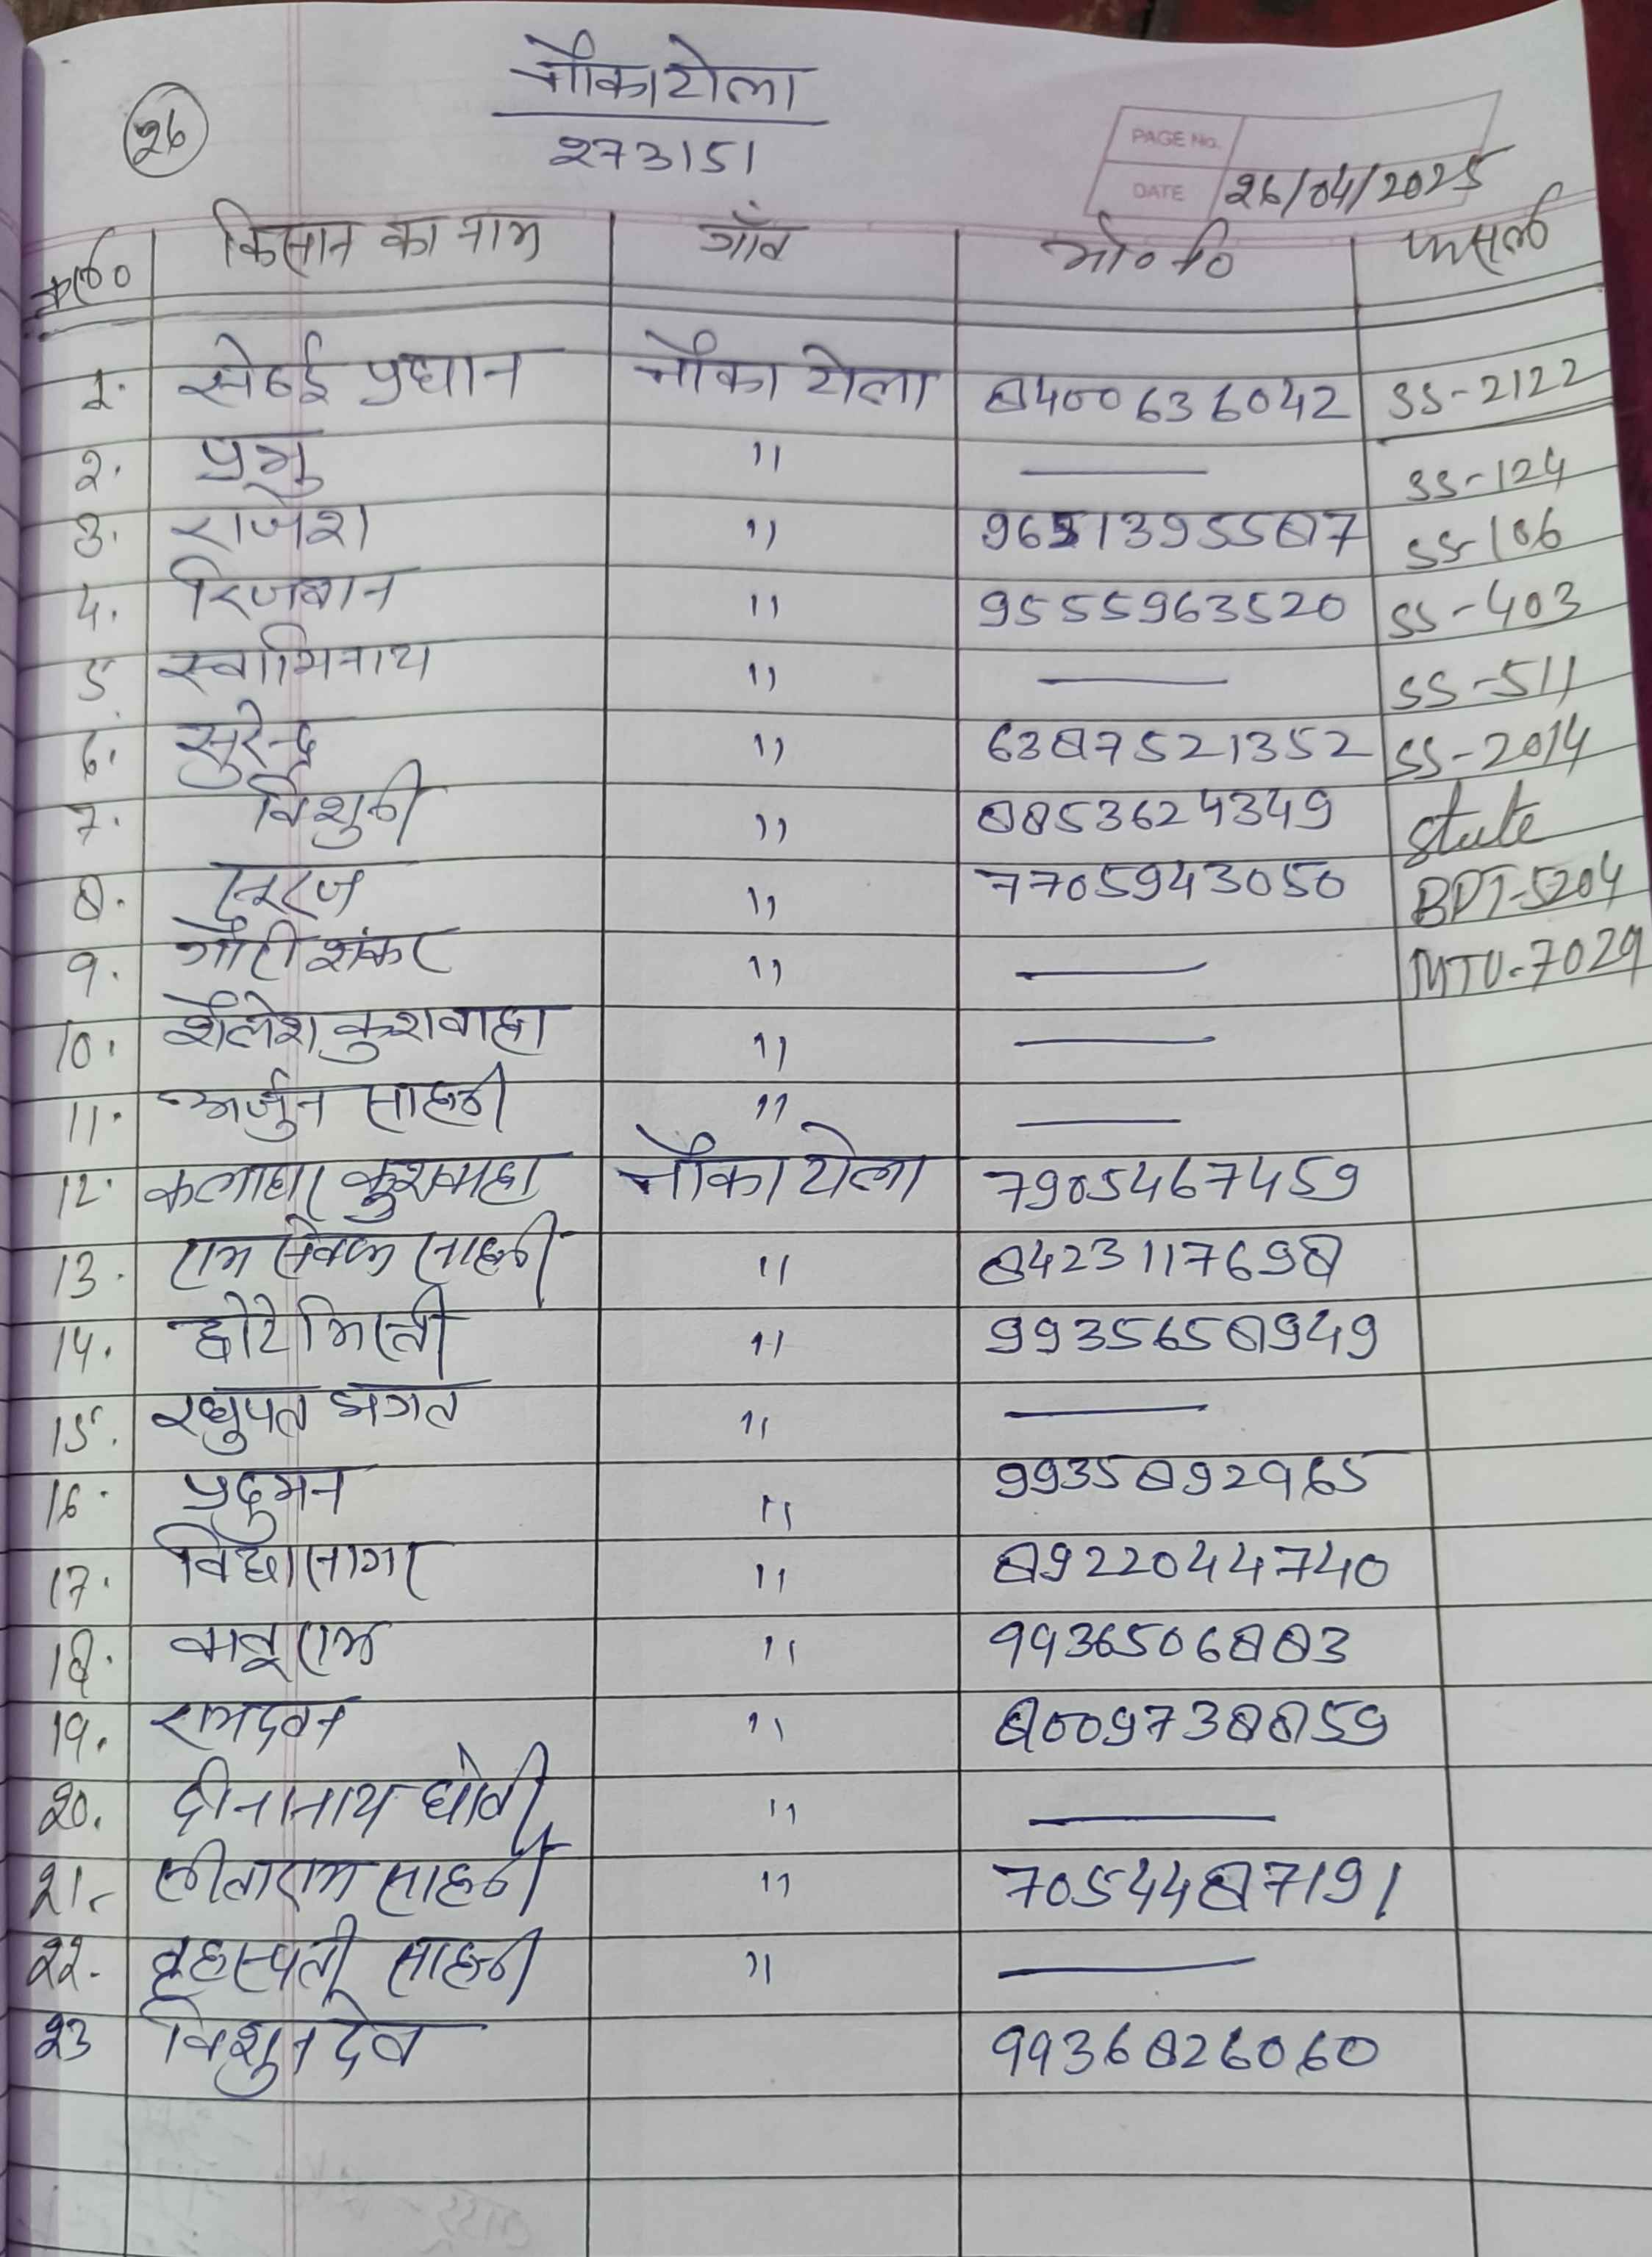 26
नौकाटोला
273151
PAGE No.
DATE 26/04/2025
क्र० किसान का नाम गाँव मो० नं० फसल
1. सेबई प्रधान नौका टोला 8400636042 SS-2122
2. प्रभु " — SS-124
3. राजेश " 9651395587 SS-106
4. रिजवान " 9555963520 SS-403
5 स्वामिनाथ " — SS-511
6. सुरेन्द्र " 6387521352 SS-2014
7. विशुनी " 8853624349 State
8. सूरज " 7705943050 BPT-5204
9. गौरी शंकर " — MTU-7029
10. शैलेश कुशवाहा " —
11. अर्जुन साहनी " —
12. कलाधर कुशवाहा नौका टोला 7905467459
13. राम सेवक साहनी " 8423117698
14. छोटे मिस्त्री " 9935658949
15. रघुपत भगत " —
16. प्रदुमन " 9935892965
17. विद्यासागर " 8922044740
18. बाबूराम " 9936506883
19. रामदवन " 8009738859
20. दीनानाथ धोबी " —
21. सीताराम साहनी " 7054487191
22. बृहस्पती साहनी " —
23 विशुनदेव 9936826060